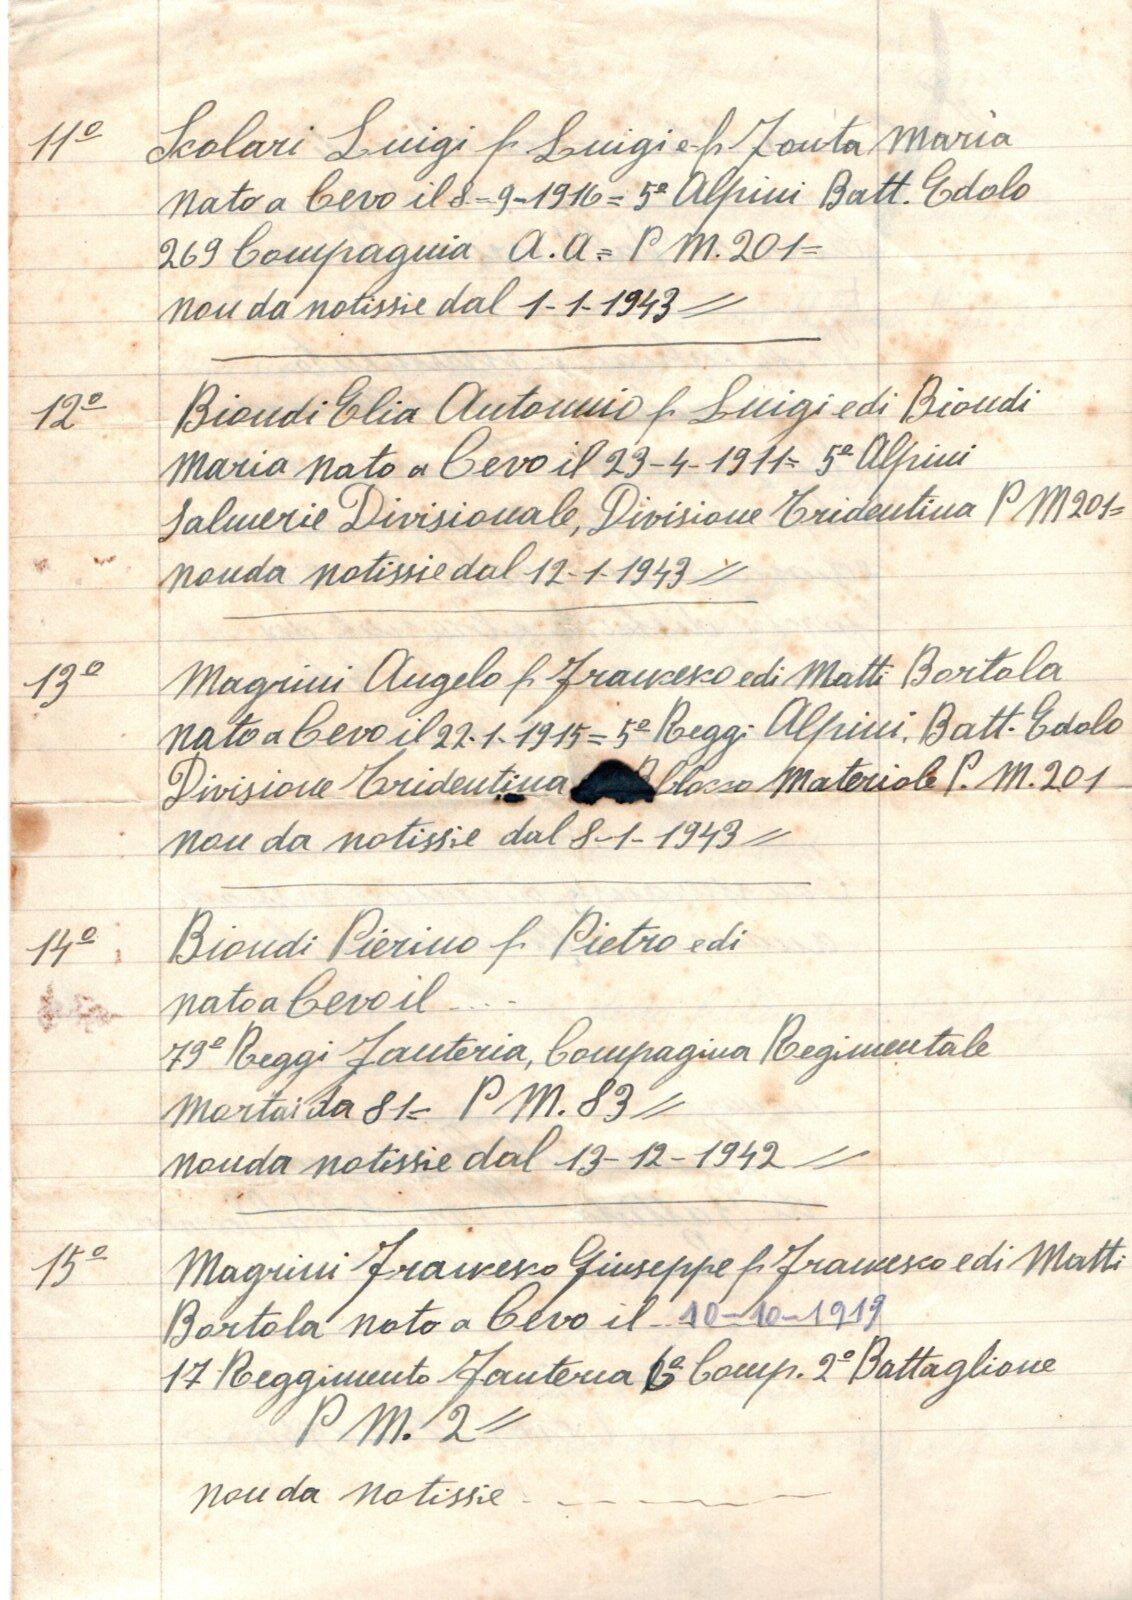 11º Scolari Luigi f Luigi e f Zonta Maria
nato a Cevo il 8-9-1916= 5º Alpini Batt. Edolo
269 Compagnia A.A.= P M. 201=
non da notissie dal 1-1-1943 //
12º Biondi Elia Antonnio f Luigi e di Biondi
Maria nato a Cevo il 23-4-1911= 5º Alpini
Salmerie Divisionale, Divisione Tridentina P M 201=
non da notissie dal 12-1-1943 //
13º Magrini Angelo f Francesco e di Matti Bortola
nato a Cevo il 22-1-1915= 5º Reggi Alpini, Batt. Edolo
Divisione Tridentina Materiale P. M. 201
non da notissie dal 8-1-1943 //
14º Biondi Pierino f Pietro e di
nato a Cevo il ...
79º Reggi Fanteria, Compagina Regimentale
Mortai da 81= P M. 83 //
non da notissie dal 13-12-1942 //
15º Magrini Francesco Giuseppe f Francesco e di Matti
Bortola nato a Cevo il 10-10-1919
17 Reggimento Fanteria 6ª Comp. 2º Battaglione
P M. 2 //
non da notissie - - - - -